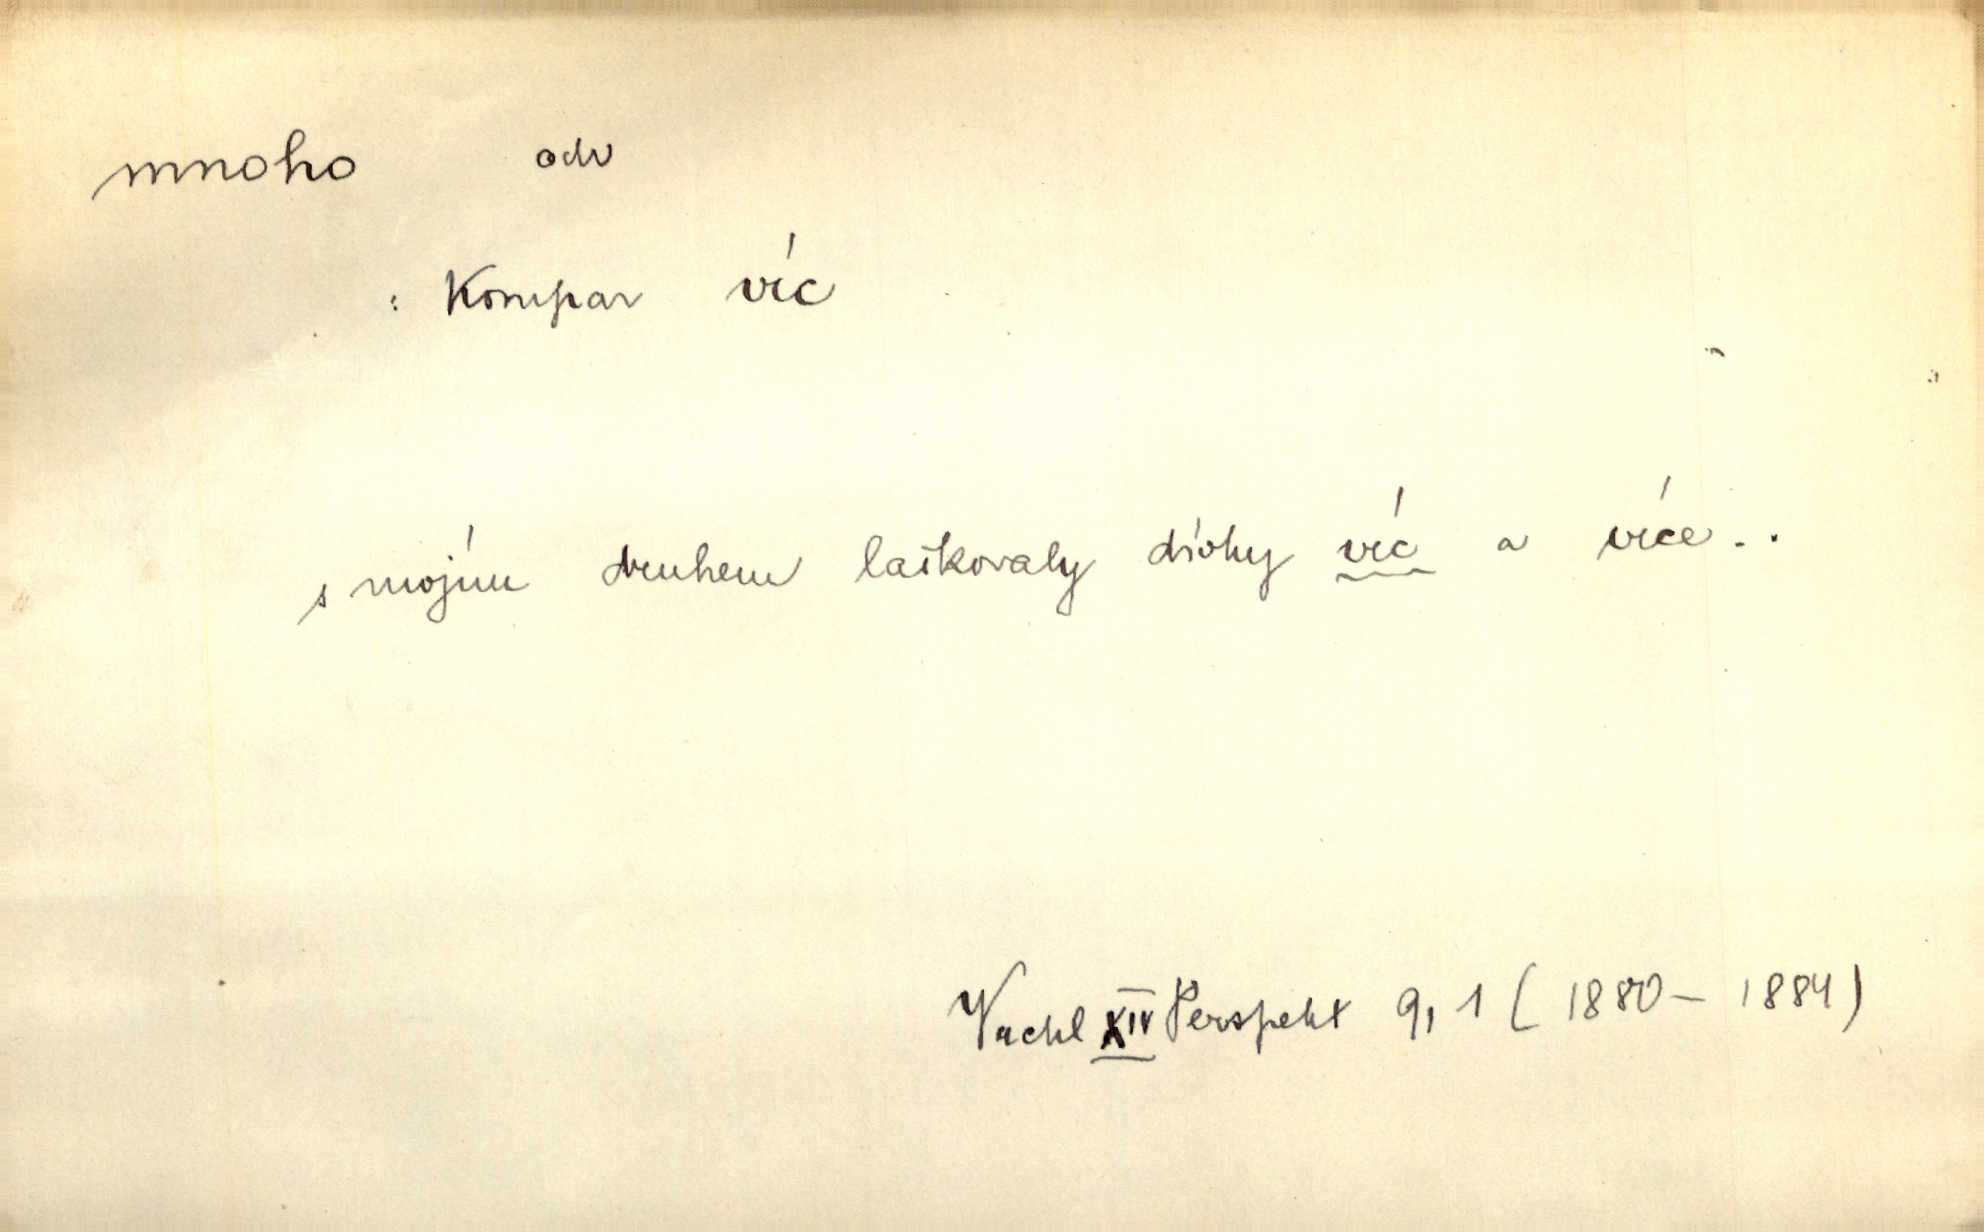 mnoho adv
: Kompar víc
s mojím druhem laškovaly dívky víc a více..
Vrchl XIV Perspekt 9,1 (1880–1884)